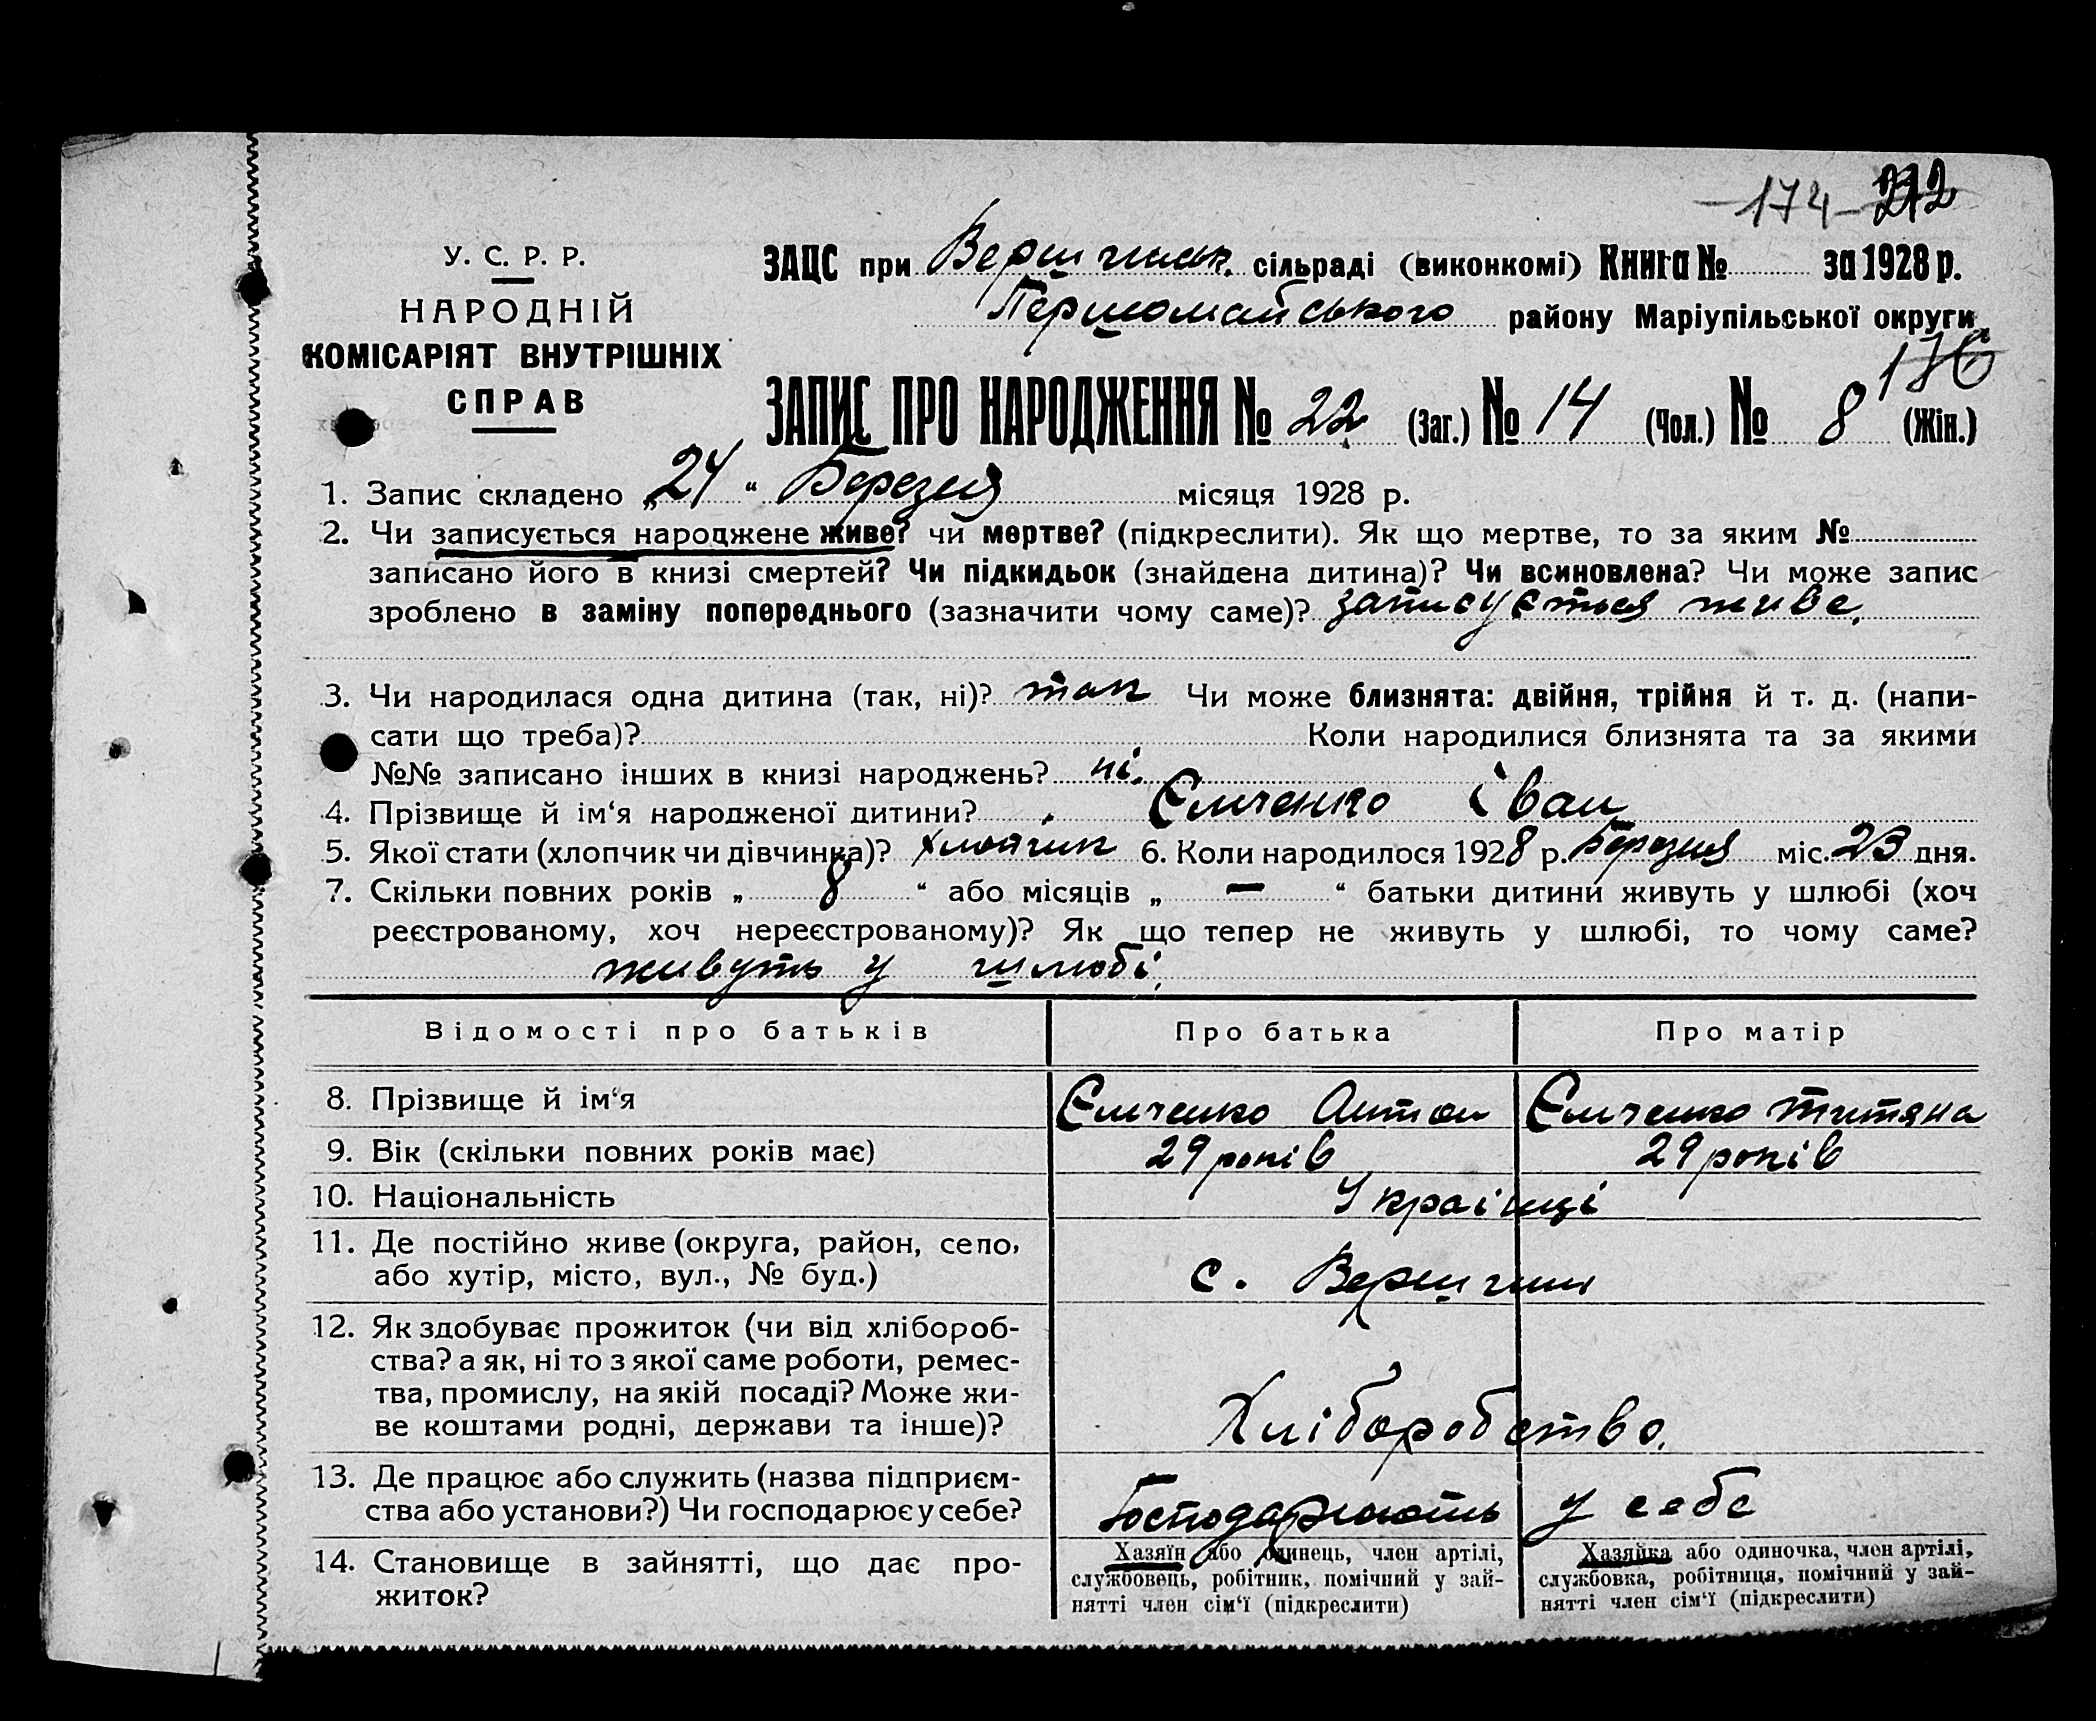 174 212
У. С. Р. Р.
НАРОДНІЙ
КОМІСАРІЯТ ВНУТРІШНІХ
СПРАВ
ЗАЦС при Вершинск. сільраді (виконкомі) Книга № за 1928 р.
Першомайського району Маріупільської округи
176
ЗАПИС ПРО НАРОДЖЕННЯ № 22 (Заг.) № 14 (Чол.) № 8 (Жін.)
1. Запис складено „24“ Березня місяця 1928 р.
2. Чи записується народжене живе? чи мертве? (підкреслити). Як що мертве, то за яким №
записано його в книзі смертей? Чи підкидьок (знайдена дитина)? Чи всиновлена? Чи може запис
зроблено в заміну попереднього (зазначити чому саме)? записується живе.
3. Чи народилася одна дитина (так, ні)? так Чи може близнята: двійня, трійня й т. д. (напи-
сати що треба)? Коли народилися близнята та за якими
№№ записано інших в книзі народжень? ні.
4. Прізвище й ім‘я народженої дитини? Ємченко Іван
5. Якої стати (хлопчик чи дівчинка)? 6. Коли народилося 1928 р. Березня міс. 23 дня.
7. Скільки повних років „ 8 “ або місяців „ — “ батьки дитини живуть у шлюбі (хоч
реєстрованому, хоч нереєстрованому)? Як що тепер не живуть у шлюбі, то чому саме?
живуть у шлюбі.
Відомості про батьків Про батька Про матір
8. Прізвище й ім‘я Ємченко Антон Ємченко Титяна
9. Вік (скільки повних років має) 29 років 29 років
10. Національність Українці
11. Де постійно живе (округа, район, село,
або хутір, місто, вул., № буд.) с. Вершини
12. Як здобуває прожиток (чи від хлібороб-
ства? а як, ні то з якої саме роботи, ремес-
тва, промислу, на якій посаді? Може жи-
ве коштами родні, держави та інше)? Хліборобство.
13. Де працює або служить (назва підприєм-
ства або установи?) Чи господарює у себе? Господарюють у себе
14. Становище в зайнятті, що дає про-
житок?
Хазяїн або одинець, член артілі,
службовець, робітник, помічний у зай-
нятті член сім‘ї (підкреслити)
Хазяйка або одиночка, член артілі,
службовка, робітниця, помічний у зай-
нятті член сім‘ї (підкреслити)